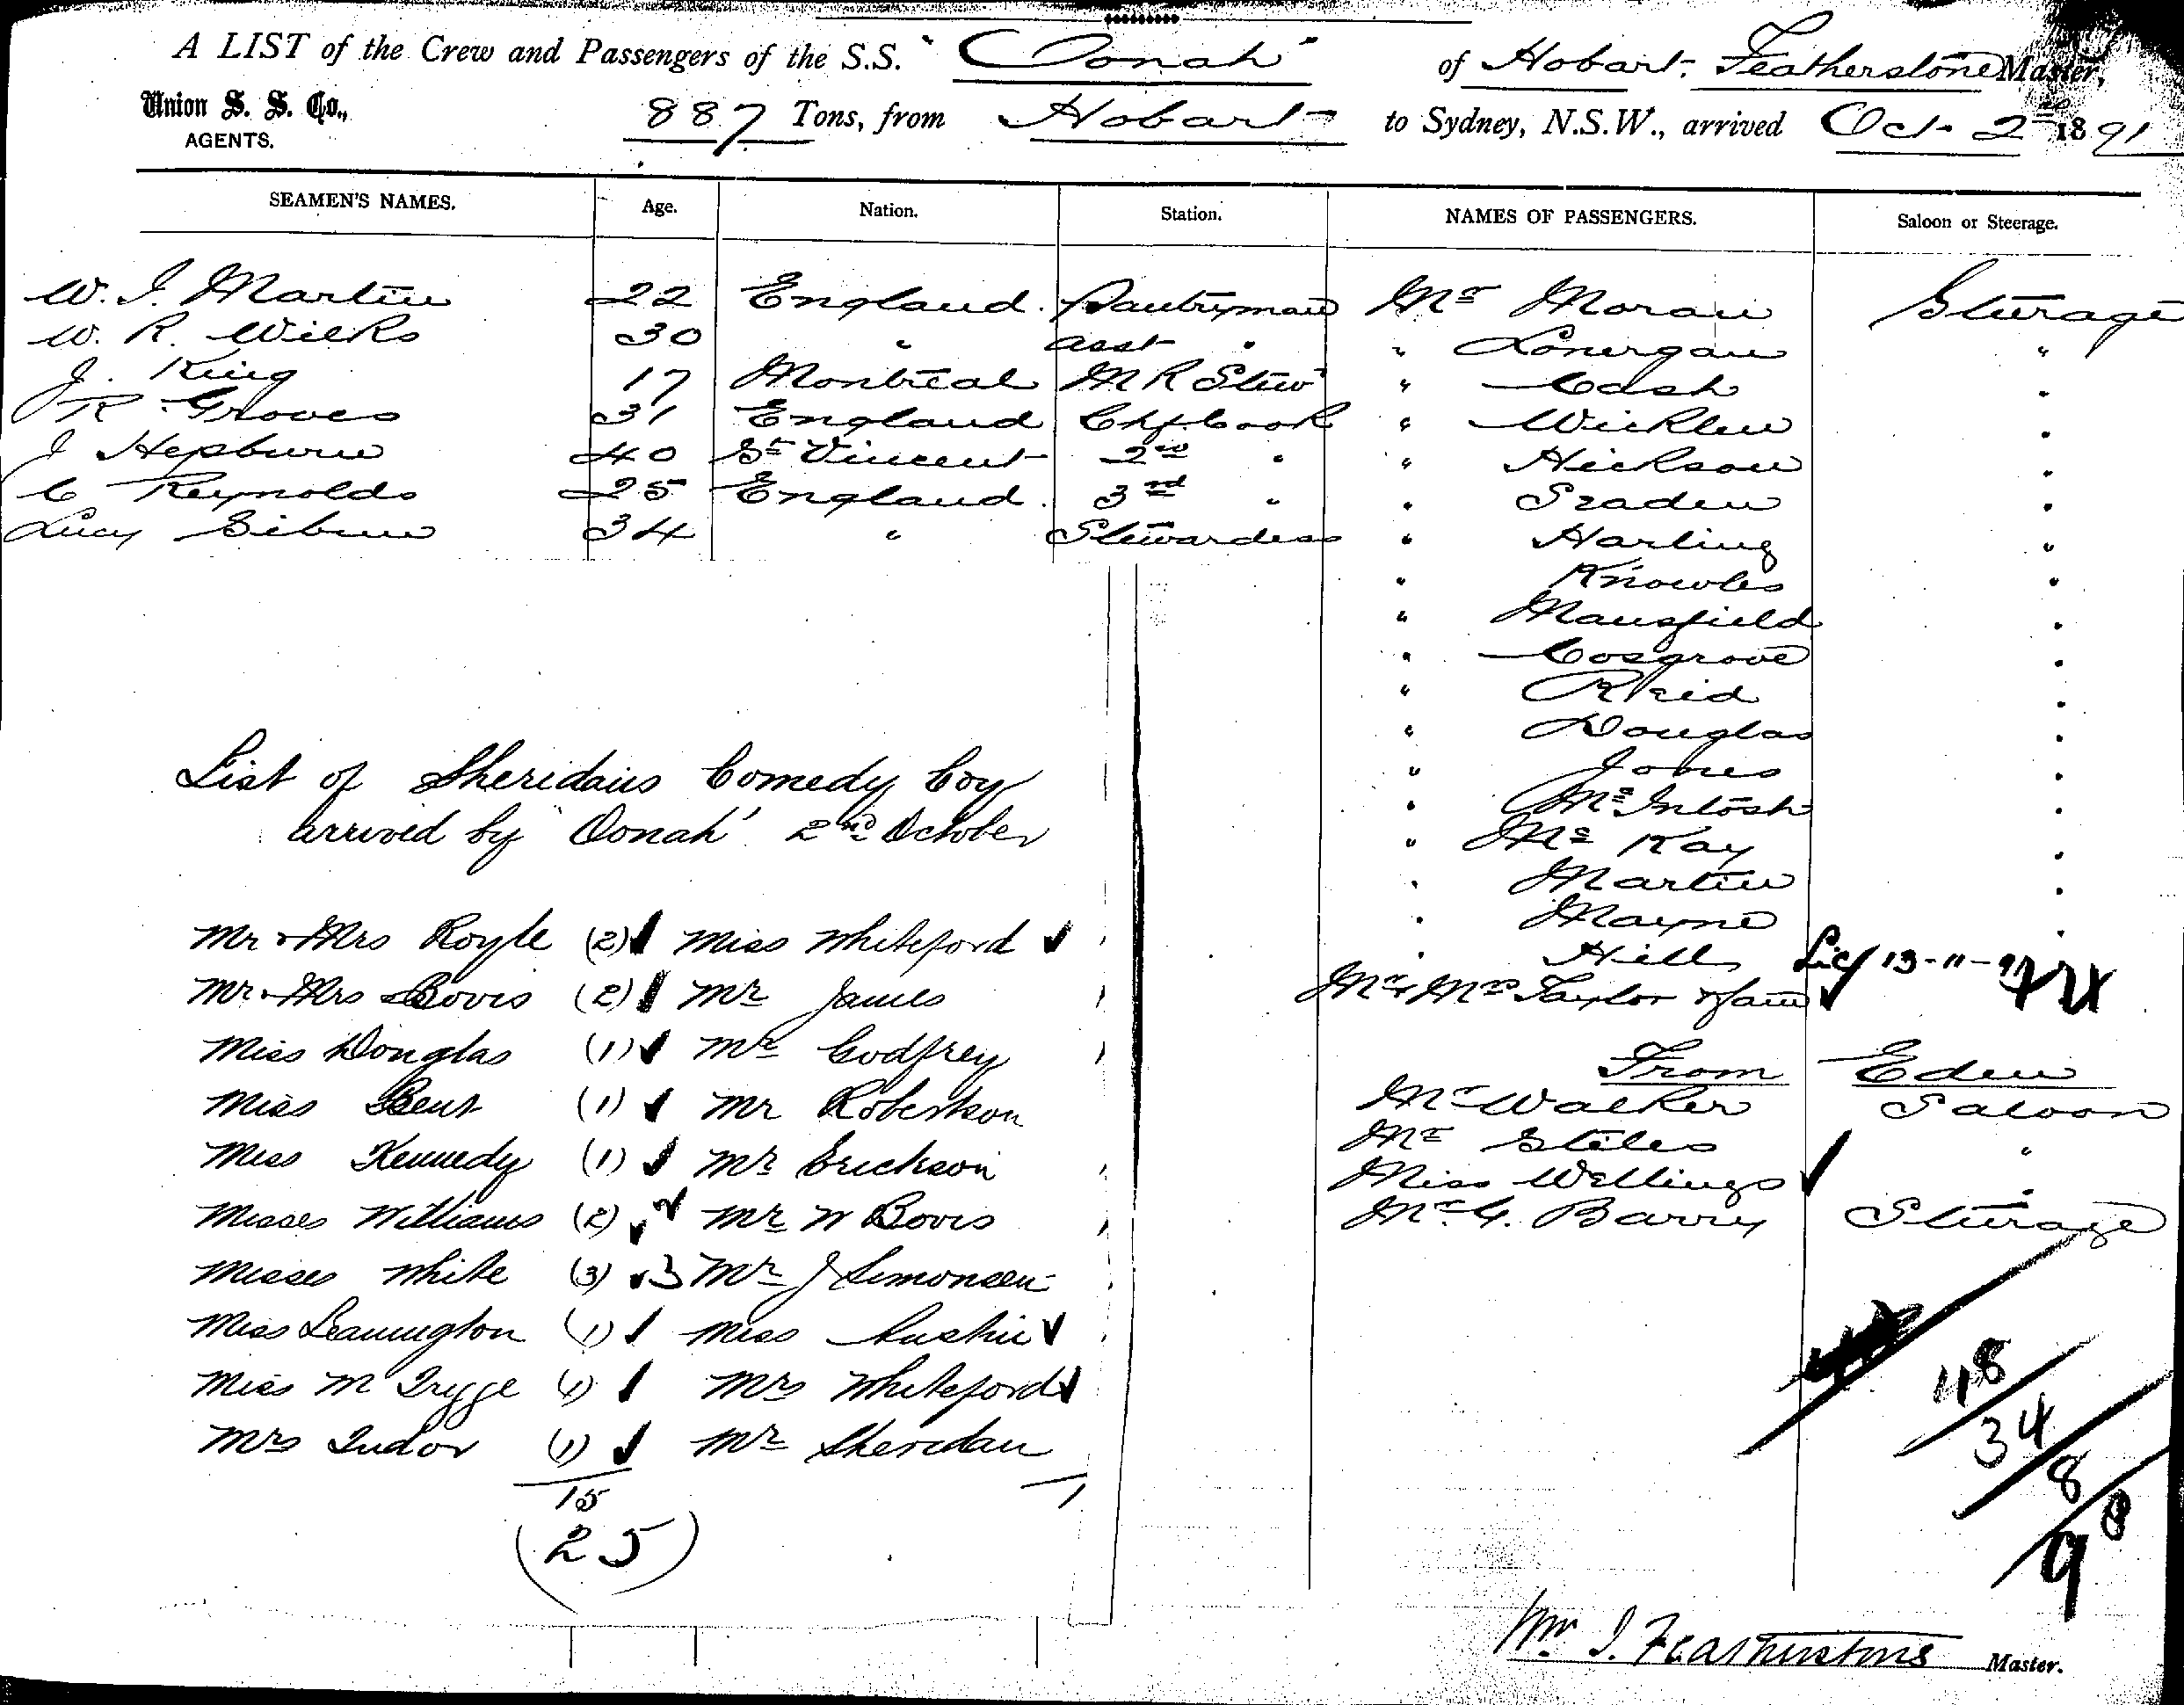 A LIST of the Crew and Passengers of the S.S. "Oonah" of Hobart. Featherstone Master,
Union S. S. Co., AGENTS. 887 Tons, from Hobart to Sydney, N.S.W., arrived Oct. 2nd 1891
SEAMEN'S NAMES. Age. Nation. Station. NAMES OF PASSENGERS. Saloon or Steerage.
W. J. Martin 22 England. Pantryman Mr Moran Steerage
W. R. Wilks 30 " asst " " Lonergan "
J. King 17 Montreal M R Stew " Cash "
R. Groves 31 England Chf Cook "
J Hepburn 40 St Vincent 2nd " " Hickson "
C Reynolds 25 England. 3rd " "
Lucy 34 " Stewardess " Harling "
" Knowles "
" Mansfield "
" Cosgrove "
" Reid "
" Douglas "
" Jones "
" McIntosh "
" Mc Kay "
" Martin "
" Mayne "
" Hill
Mr & Mrs Taylor & fam
From Eden
Mr Walker Saloon
Mr Stiles "
Miss Wellings "
Mr G. Barry Steerage
List of Sheridans Comedy Coy
arrived by "Oonah" 2nd October
Mr & Mrs Royle (2) Miss Whiteford
Mr & Mrs Bovis (2) Mr James
Miss Douglas (1) Mr Godfrey
Miss Bent (1) Mr Robertson
Miss Kennedy (1) Mr Erickson
Misses Williams (2) Mr W Bovis
Misses White (3) 3 Mr J Simonsen
Miss Leamington (1) Miss
Miss M Trygge (1) Mrs Whiteford
Mrs Tudor (1) Mr Sheridan
15
(25)
118
34
8
9
Wm J. Featherstone Master.